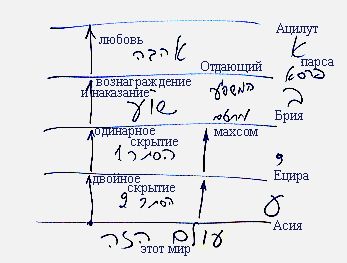 Ацилут
любовь אהבה א
Отдающий парса
פרסא
вознаграждение המשפיע
и наказание שו"ע ב
Брия
одинарное махсом
скрытие
הסתר 1 י
Ецира
двойное
скрытие
הסתר 2 ע
Асия
עולם הזה
этот мир